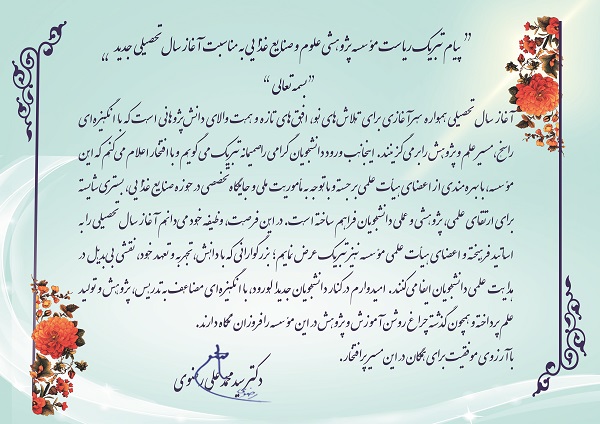 " پیام تبریک ریاست مؤسسه پژوهشی علوم و صنایع غذایی به مناسبت آغاز سال تحصیلی جدید "
"بسمه تعالی"
آغاز سال تحصیلی همواره سرآغازی برای تلاش‌های نو، افق‌های تازه و همت والای دانش‌پژوهانی است که با انگیزه‌ای
راسخ، مسیر علم و پژوهش را بر می‌گزینند. اینجانب ورود دانشجویان گرامی را صمیمانه تبریک می‌گویم و با افتخار اعلام می‌کنم که این
مؤسسه، با بهره مندی از اعضای هیأت علمی برجسته و با توجه به ماموریت ملی و جایگاه تخصصی در حوزه صنایع غذایی، بستری شایسته
برای ارتقای علمی، پژوهشی و عملی دانشجویان فراهم ساخته است. در این فرصت، وظیفه خود می‌دانم آغاز سال تحصیلی را به
اساتید فرهیخته و اعضای هیأت علمی مؤسسه نیز تبریک عرض نمایم؛ بزرگوارانی که با دانش، تجربه و تعهد خود، نقشی بی‌بدیل در
هدایت علمی دانشجویان ایفا می‌کنند. امیدوارم در کنار دانشجویان جدیدالورود، با انگیزه‌ای مضاعف به تدریس، پژوهش و تولید
علم پرداخته و همچون گذشته چراغ روشن آموزش و پژوهش در این مؤسسه را فروزان نگاه دارند.
با آرزوی موفقیت برای همگان در این مسیر پر افتخار.
دکتر سید محمد علی رضوی